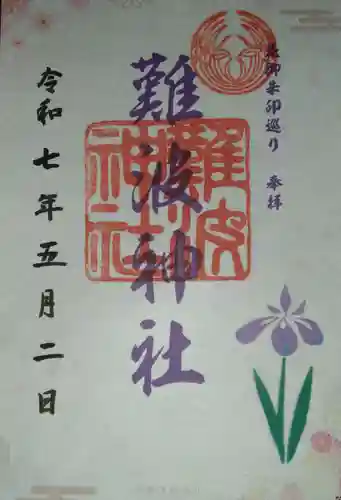 花御朱印巡り 奉拝
難波神社
難波
神社
令和七年五月二日